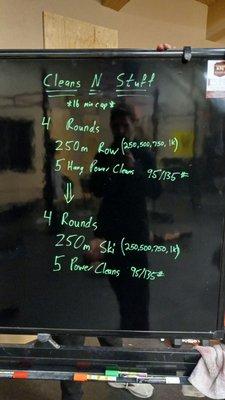 Cleans N Stuff
*16 min cap*
4 Rounds
250m Row (250,500,750,1K)
5 Hang Power Cleans 95/135#
⇓
4 Rounds
250m Ski (250,500,750,1K)
5 Power Cleans 95/135#